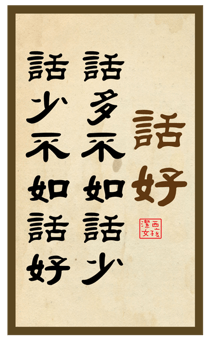 話好
話多不如話少
話少不如話好